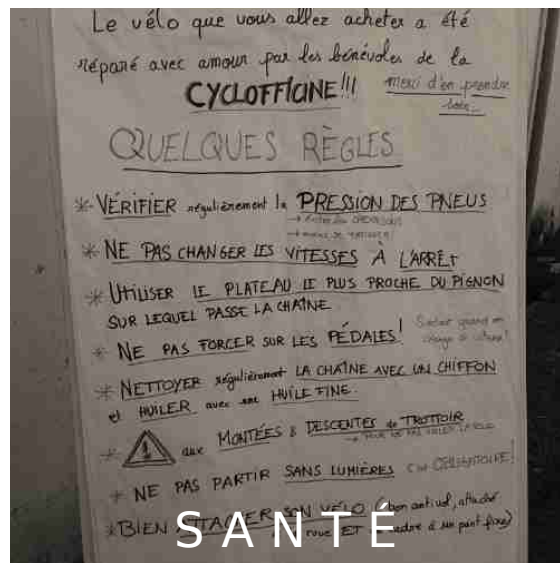 Le vélo que vous allez acheter a été
réparé avec amour par les bénévoles de la
CYCLOFFICINE!!! merci d'en prendre
soin...
QUELQUES RÈGLES
* VÉRIFIER régulièrement la PRESSION DES PNEUS
→ éviter les CREVAISONS
→ moins de FATIGUE!
* NE PAS CHANGER LES VITESSES À L'ARRÊT
* UTILISER LE PLATEAU LE PLUS PROCHE DU PIGNON
SUR LEQUEL PASSE LA CHAÎNE
* NE PAS FORCER SUR LES PÉDALES! Surtout quand on
change de vitesse!
* NETTOYER régulièrement LA CHAÎNE AVEC UN CHIFFON
et HUILER avec une HUILE FINE.
* ! aux MONTÉES & DESCENTES de TROTTOIR
→ POUR NE PAS VOILER LA ROUE
* NE PAS PARTIR SANS LUMIÈRES c'est OBLIGATOIRE!
* BIEN ATTACHER SON VÉLO (bon antivol, attaché
roue ET cadre à un point fixe)
SANTÉ